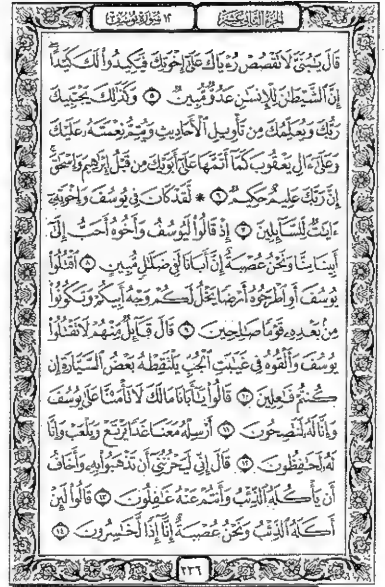 الجزء الثاني عشر ١٢ سورة يوسف
قَالَ يَٰبُنَيَّ لَا تَقْصُصْ رُءْيَاكَ عَلَىٰٓ إِخْوَتِكَ فَيَكِيدُواْ لَكَ كَيْدًاۖ
إِنَّ ٱلشَّيْطَٰنَ لِلْإِنسَٰنِ عَدُوٌّ مُّبِينٌ ٥ وَكَذَٰلِكَ يَجْتَبِيكَ
رَبُّكَ وَيُعَلِّمُكَ مِن تَأْوِيلِ ٱلْأَحَادِيثِ وَيُتِمُّ نِعْمَتَهُۥ عَلَيْكَ
وَعَلَىٰٓ ءَالِ يَعْقُوبَ كَمَآ أَتَمَّهَا عَلَىٰٓ أَبَوَيْكَ مِن قَبْلُ إِبْرَٰهِيمَ وَإِسْحَٰقَۚ
إِنَّ رَبَّكَ عَلِيمٌ حَكِيمٌ ٦ * لَّقَدْ كَانَ فِي يُوسُفَ وَإِخْوَتِهِۦٓ
ءَايَٰتٌ لِّلسَّآئِلِينَ ٧ إِذْ قَالُواْ لَيُوسُفُ وَأَخُوهُ أَحَبُّ إِلَىٰٓ
أَبِينَا مِنَّا وَنَحْنُ عُصْبَةٌ إِنَّ أَبَانَا لَفِي ضَلَٰلٍ مُّبِينٍ ٨ ٱقْتُلُواْ
يُوسُفَ أَوِ ٱطْرَحُوهُ أَرْضًا يَخْلُ لَكُمْ وَجْهُ أَبِيكُمْ وَتَكُونُواْ
مِنۢ بَعْدِهِۦ قَوْمًا صَٰلِحِينَ ٩ قَالَ قَآئِلٌ مِّنْهُمْ لَا تَقْتُلُواْ
يُوسُفَ وَأَلْقُوهُ فِي غَيَٰبَتِ ٱلْجُبِّ يَلْتَقِطْهُ بَعْضُ ٱلسَّيَّارَةِ إِن
كُنتُمْ فَٰعِلِينَ ١٠ قَالُواْ يَٰٓأَبَانَا مَا لَكَ لَا تَأْمَ۫نَّا عَلَىٰ يُوسُفَ
وَإِنَّا لَهُۥ لَنَٰصِحُونَ ١١ أَرْسِلْهُ مَعَنَا غَدًا يَرْتَعْ وَيَلْعَبْ وَإِنَّا
لَهُۥ لَحَٰفِظُونَ ١٢ قَالَ إِنِّي لَيَحْزُنُنِيٓ أَن تَذْهَبُواْ بِهِۦ وَأَخَافُ
أَن يَأْكُلَهُ ٱلذِّئْبُ وَأَنتُمْ عَنْهُ غَٰفِلُونَ ١٣ قَالُواْ لَئِنْ
أَكَلَهُ ٱلذِّئْبُ وَنَحْنُ عُصْبَةٌ إِنَّآ إِذًا لَّخَٰسِرُونَ ١٤
٢٣٦